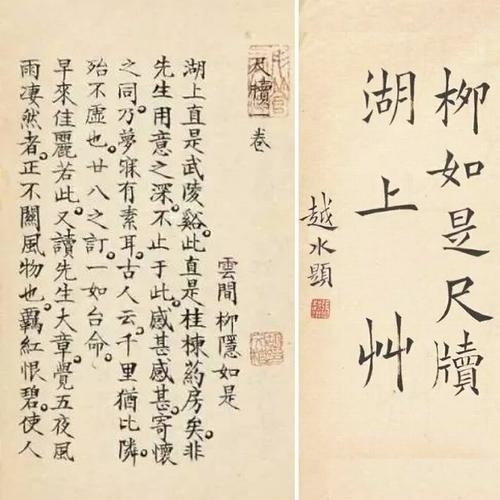 柳如是尺牘
湖上艸
越水題
尺牘一卷
雲間柳隱如是
湖上直是武陵谿。此直是桂棟葯房矣。非
先生用意之深。不止于此。感甚感甚。寄懷
之同。乃夢寐有素耳。古人云千里猶比隣。
殆不虛也。廿八之訂。一如台命。
早來佳麗若此。又讀先生大章。覺五夜風
雨凄然者。正不關風物也。羈紅恨碧。使人